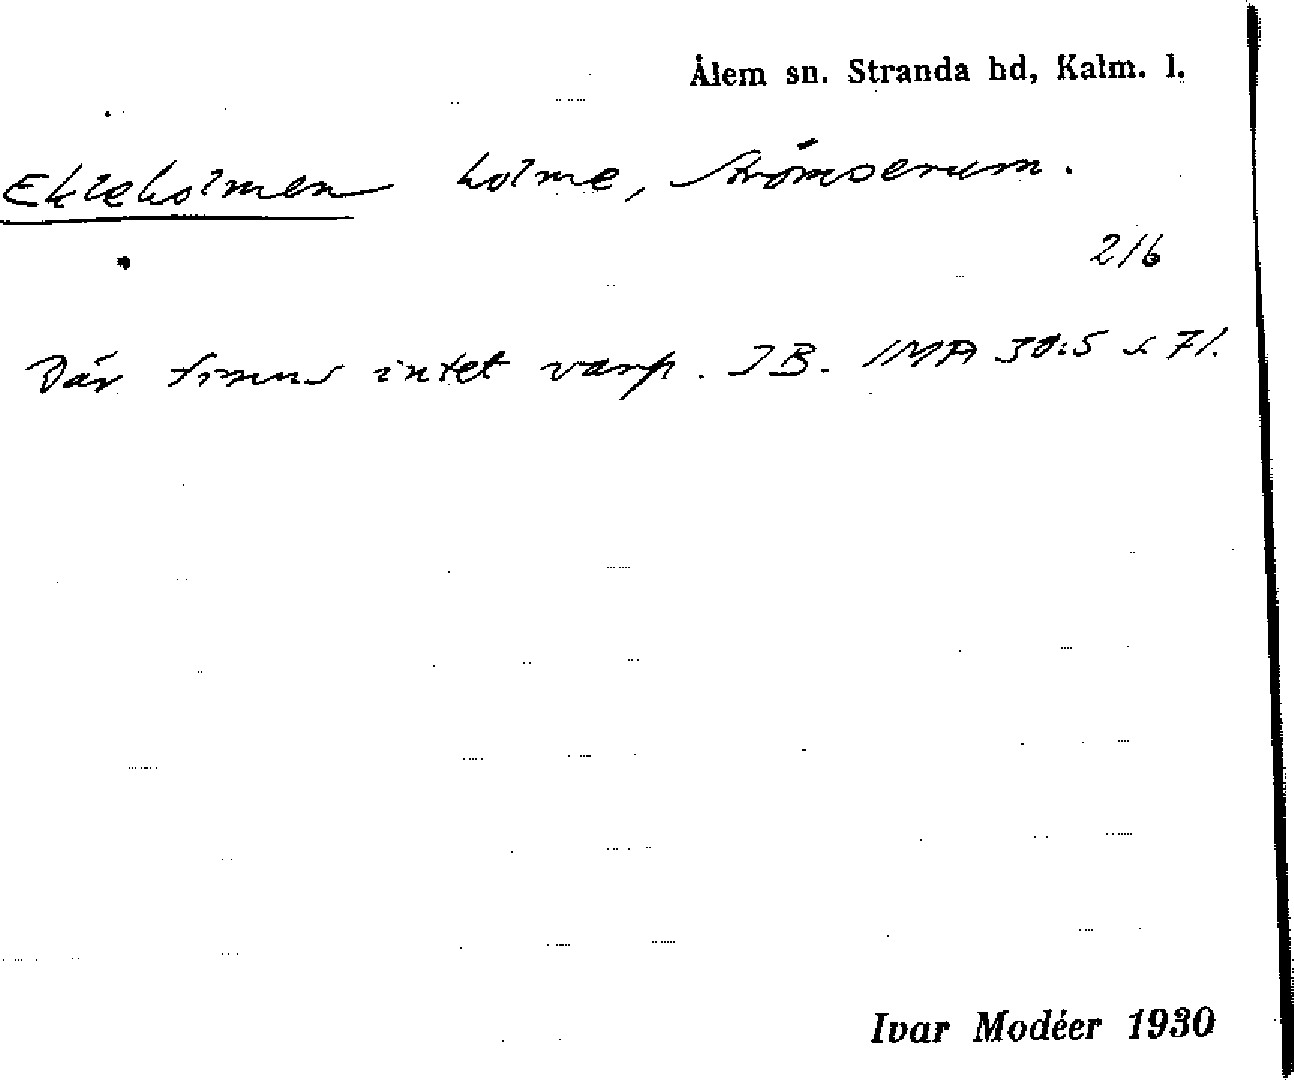 Ålem sn. Stranda hd, Kalm. l.
Ekleholmen holme, Strömserum.
2/6
Där finns intet varp. JB. IMA 30:5 s 71.
Ivar Modéer 1930